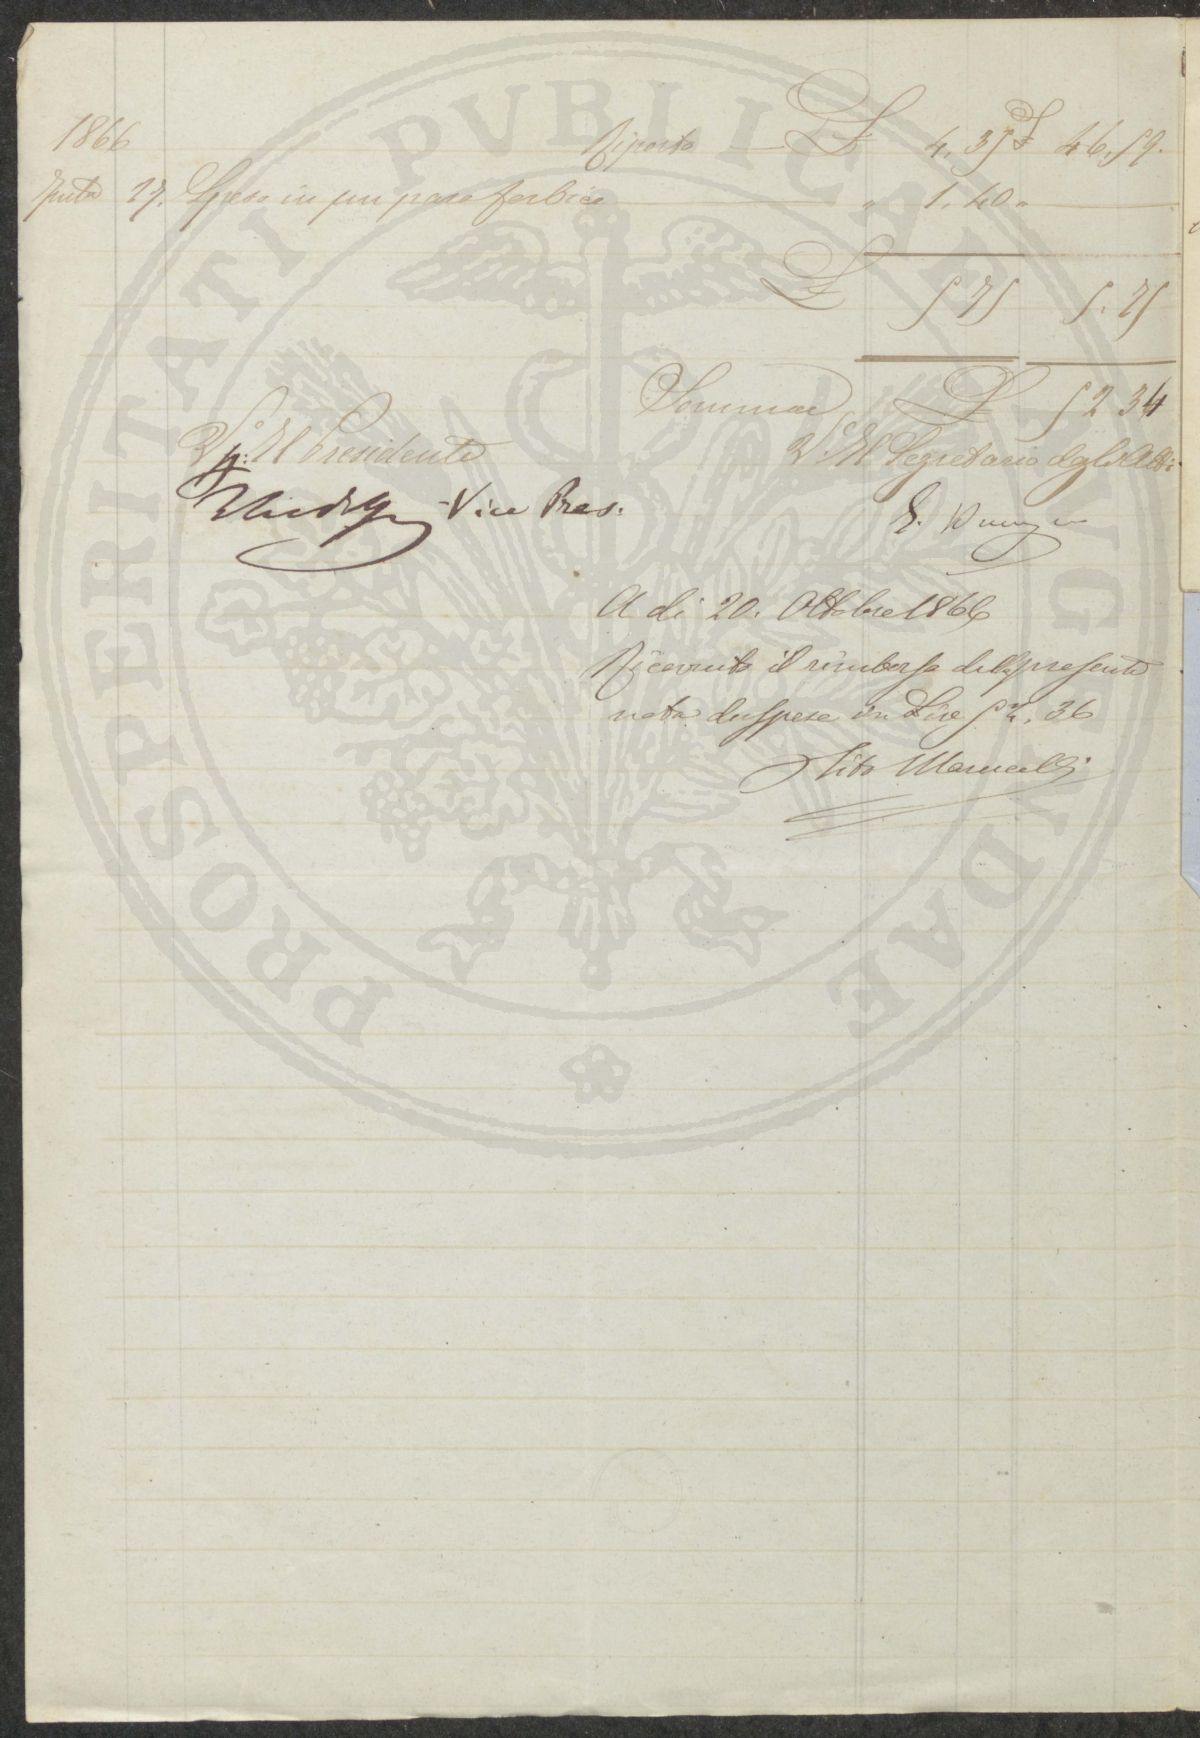 1866 Riporto £ 4. 35 £ 46. 59.
27. Spesa in un paro forbice " 1. 40 "
£ 5 75 5. 75
Somma £ 52 34
Vº. Il Presidente Vº. Il Segretario degli Atti
Vice Pres.
A di 20. Ottobre 1866
Ricevuto il rimborso della presente
nota di spese in Lire 52. 36
Tito Marucelli
PROSPERITATI PVBLICAE AVGENDAE